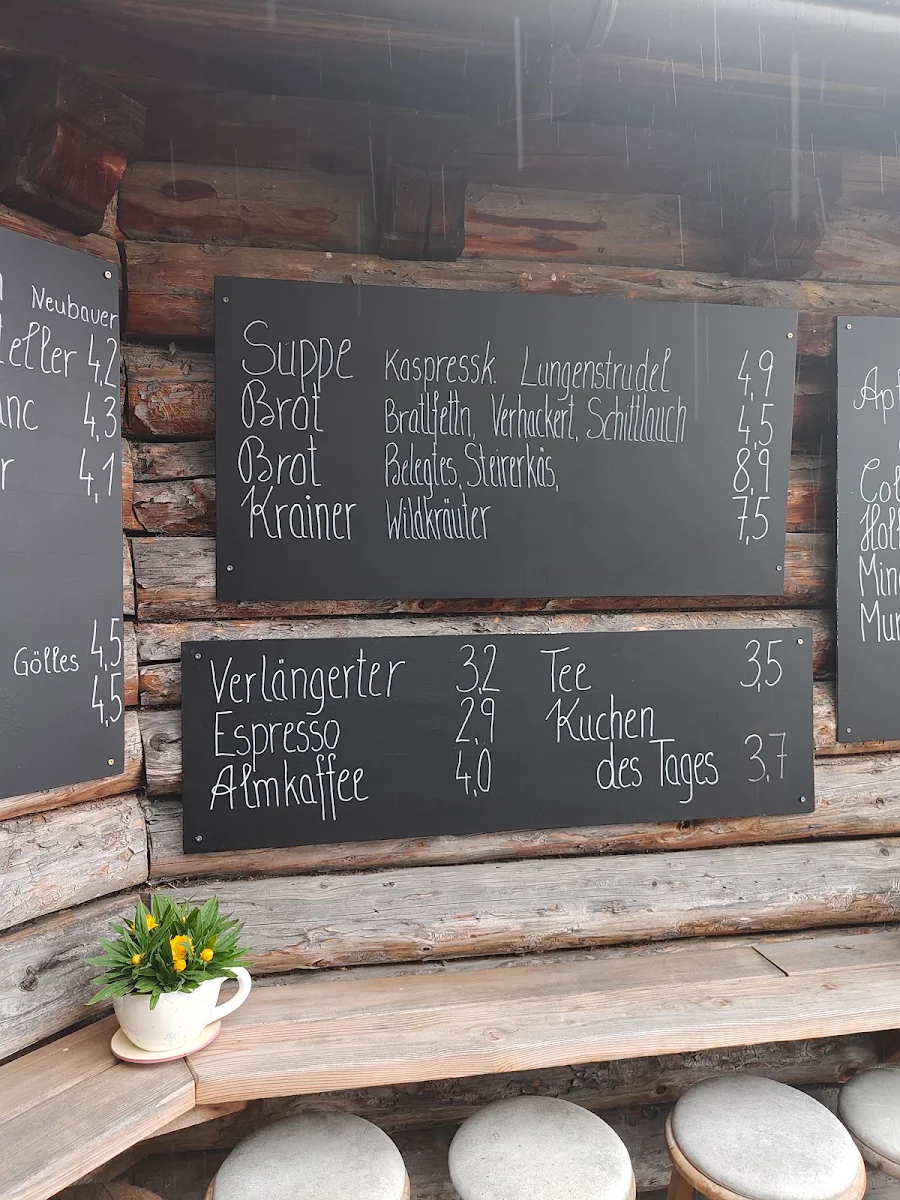 Neubauer
eller 4,2
nc 4,3
r 4,1
Gölles 4,5
4,5
Suppe Kaspressk. Lungenstrudel 4,9
Brot Bratlfettn, Verhackert, Schittlauch 4,5
Brot Belegtes, Steirerkäs, 8,9
Krainer Wildkräuter 7,5
Verlängerter 3,2 Tee 3,5
Espresso 2,9 Kuchen
Almkaffee 4,0 des Tages 3,7
Apf
Col
Holl
Min
Mur